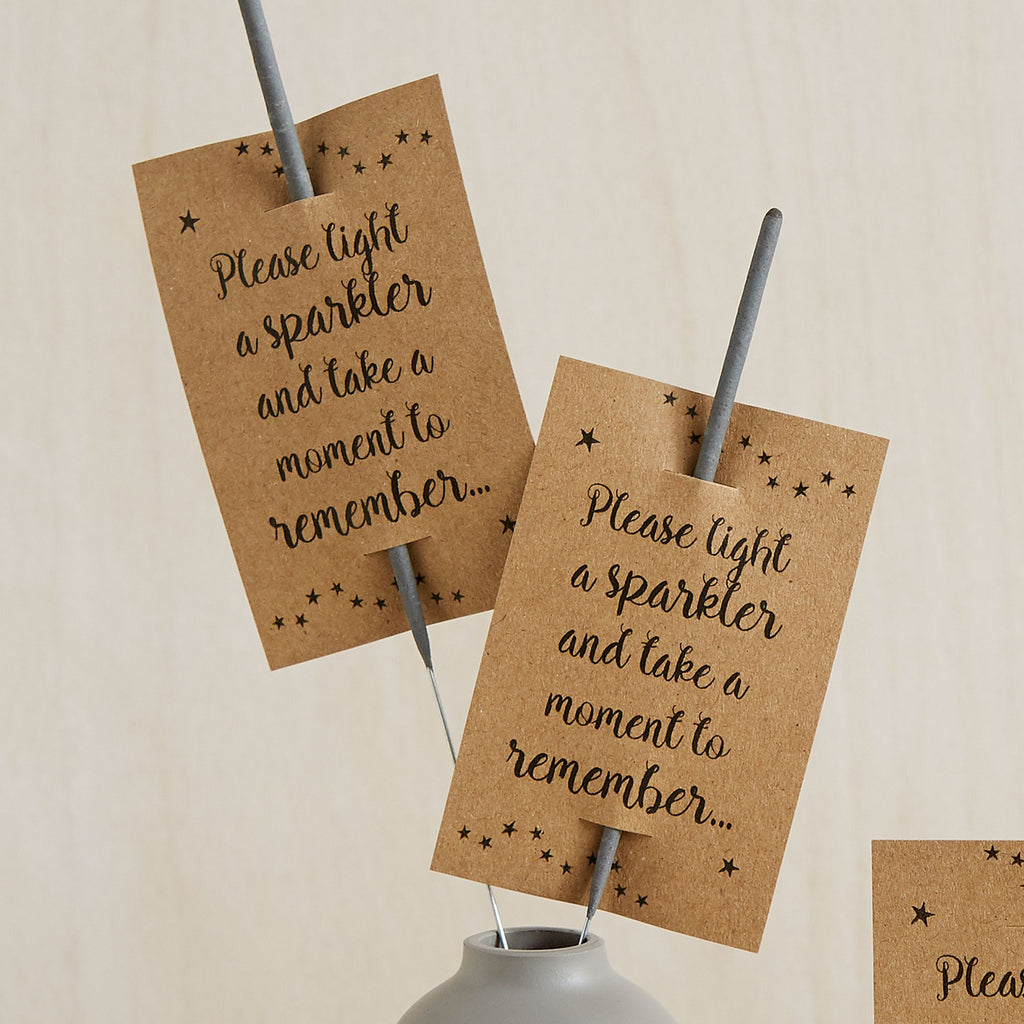 Please light
a sparkler
and take a
moment to
remember...
Please light
a sparkler
and take a
moment to
remember...